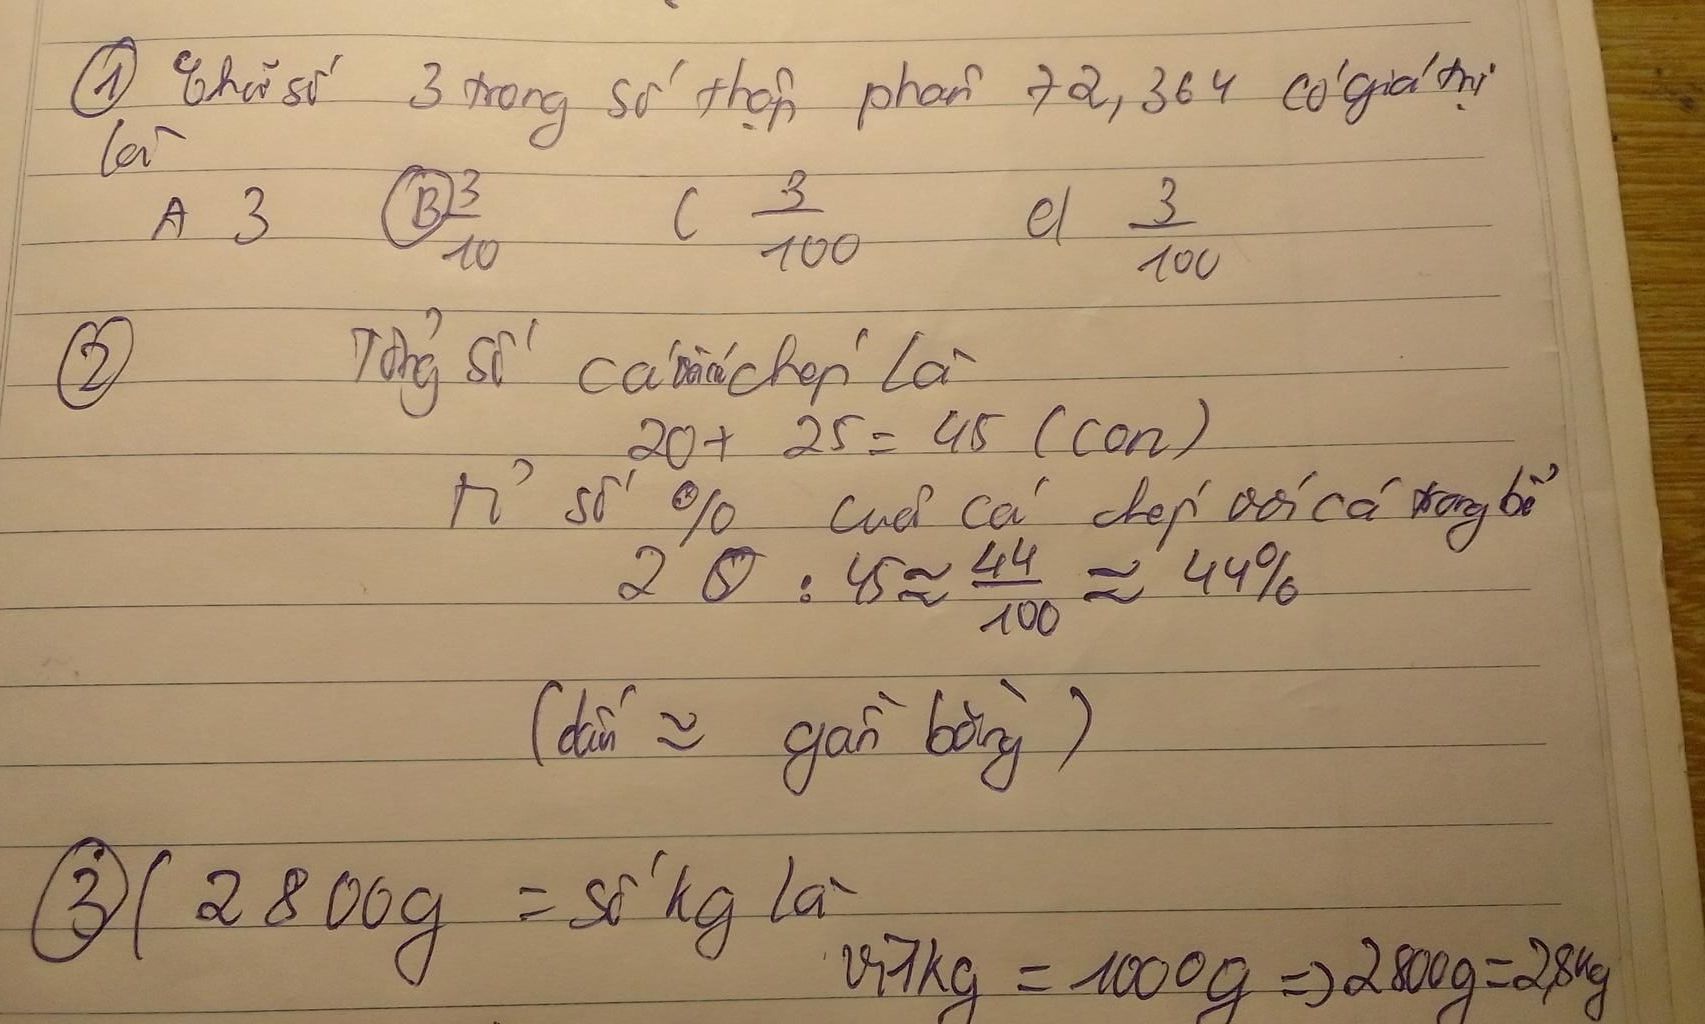 ① Chữ số 3 trong số thập phân 72,364 có giá trị
là
A 3 Ⓑ 3/10 C 3/100 d 3/100
② Tổng số cá và cá chép là
20 + 25 = 45 (con)
Tỉ số % cuả cá chép với cá trong bể
20 : 45 ≈ 44/100 ≈ 44%
(dấu ≈ gần bằng)
③ ( 2800g = số kg là
Vì 1kg = 1000g => 2800g = 2,8kg